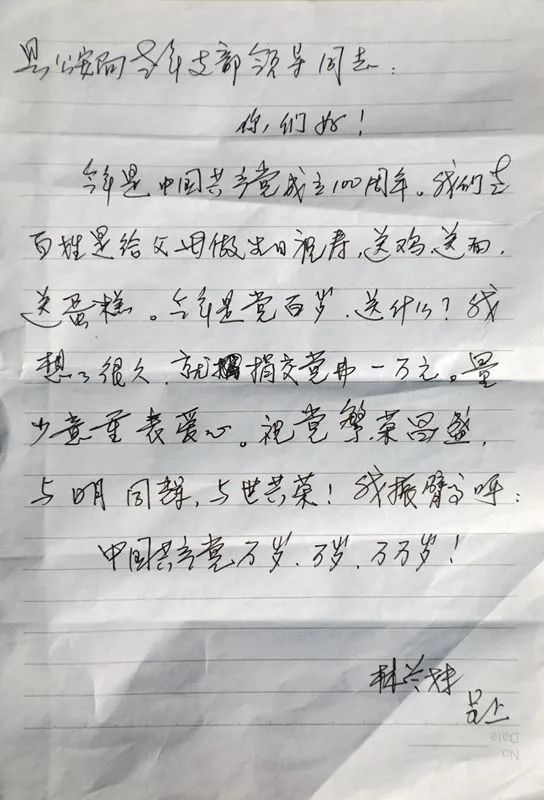 县公安局老年支部领导同志：
你们好！
今年是中国共产党成立100周年。我们老
百姓是给父母做生日祝寿，送鸡、送面、
送蛋糕。今年是党百岁，送什么？我
想了很久，就捐交党费一万元。量
少意重表爱心。祝党繁荣昌盛，
与日月同辉，与世共荣！我振臂高呼：
中国共产党万岁、万岁、万万岁！
林兰妹
呈上
No.
Date